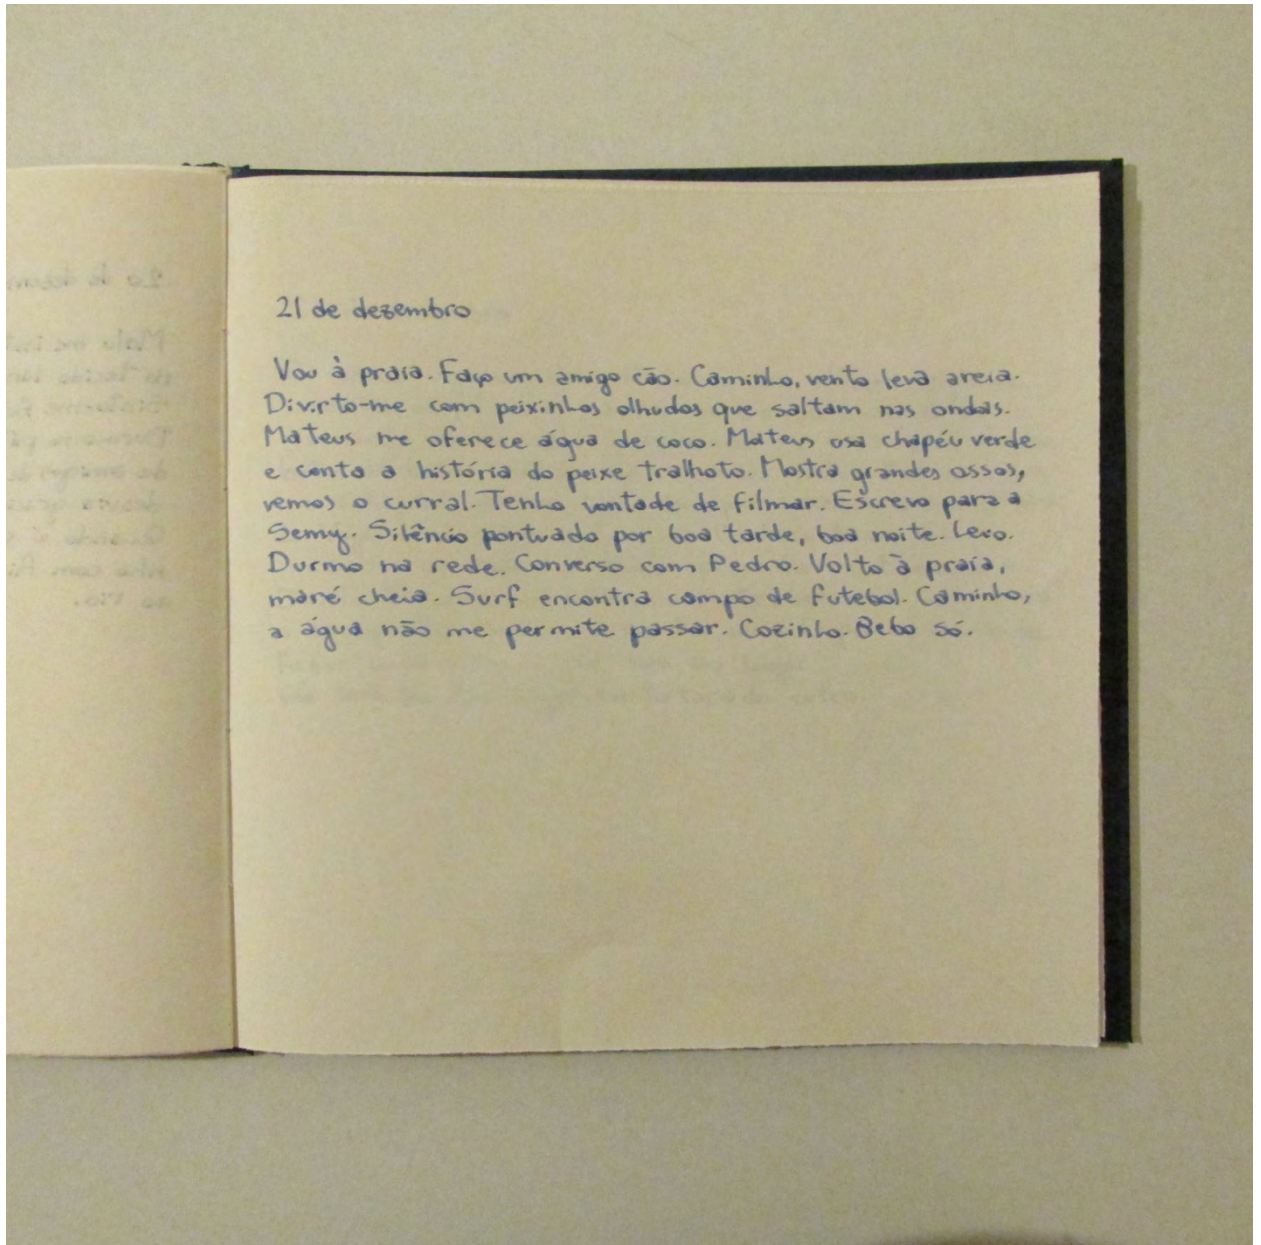 21 de dezembro
Vou à praia. Faço um amigo cão. Caminho, vento leva areia.
Divirto-me com peixinhos olhudos que saltam nas ondas.
Mateus me oferece água de coco. Mateus usa chapéu verde
e conta a história do peixe tralhoto. Mostra grandes ossos,
vemos o curral. Tenho vontade de filmar. Escrevo para a
Semy. Silêncio pontuado por boa tarde, boa noite. Leio.
Durmo na rede. Converso com Pedro. Volto à praia,
maré cheia. Surf encontra campo de futebol. Caminho,
a água não me permite passar. Cozinho. Bebo só.